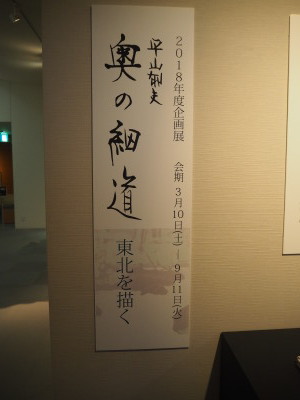 2018年度企画展 会期 3月10日(土)~9月11日(火)
平山郁夫
奥の細道
東北を描く